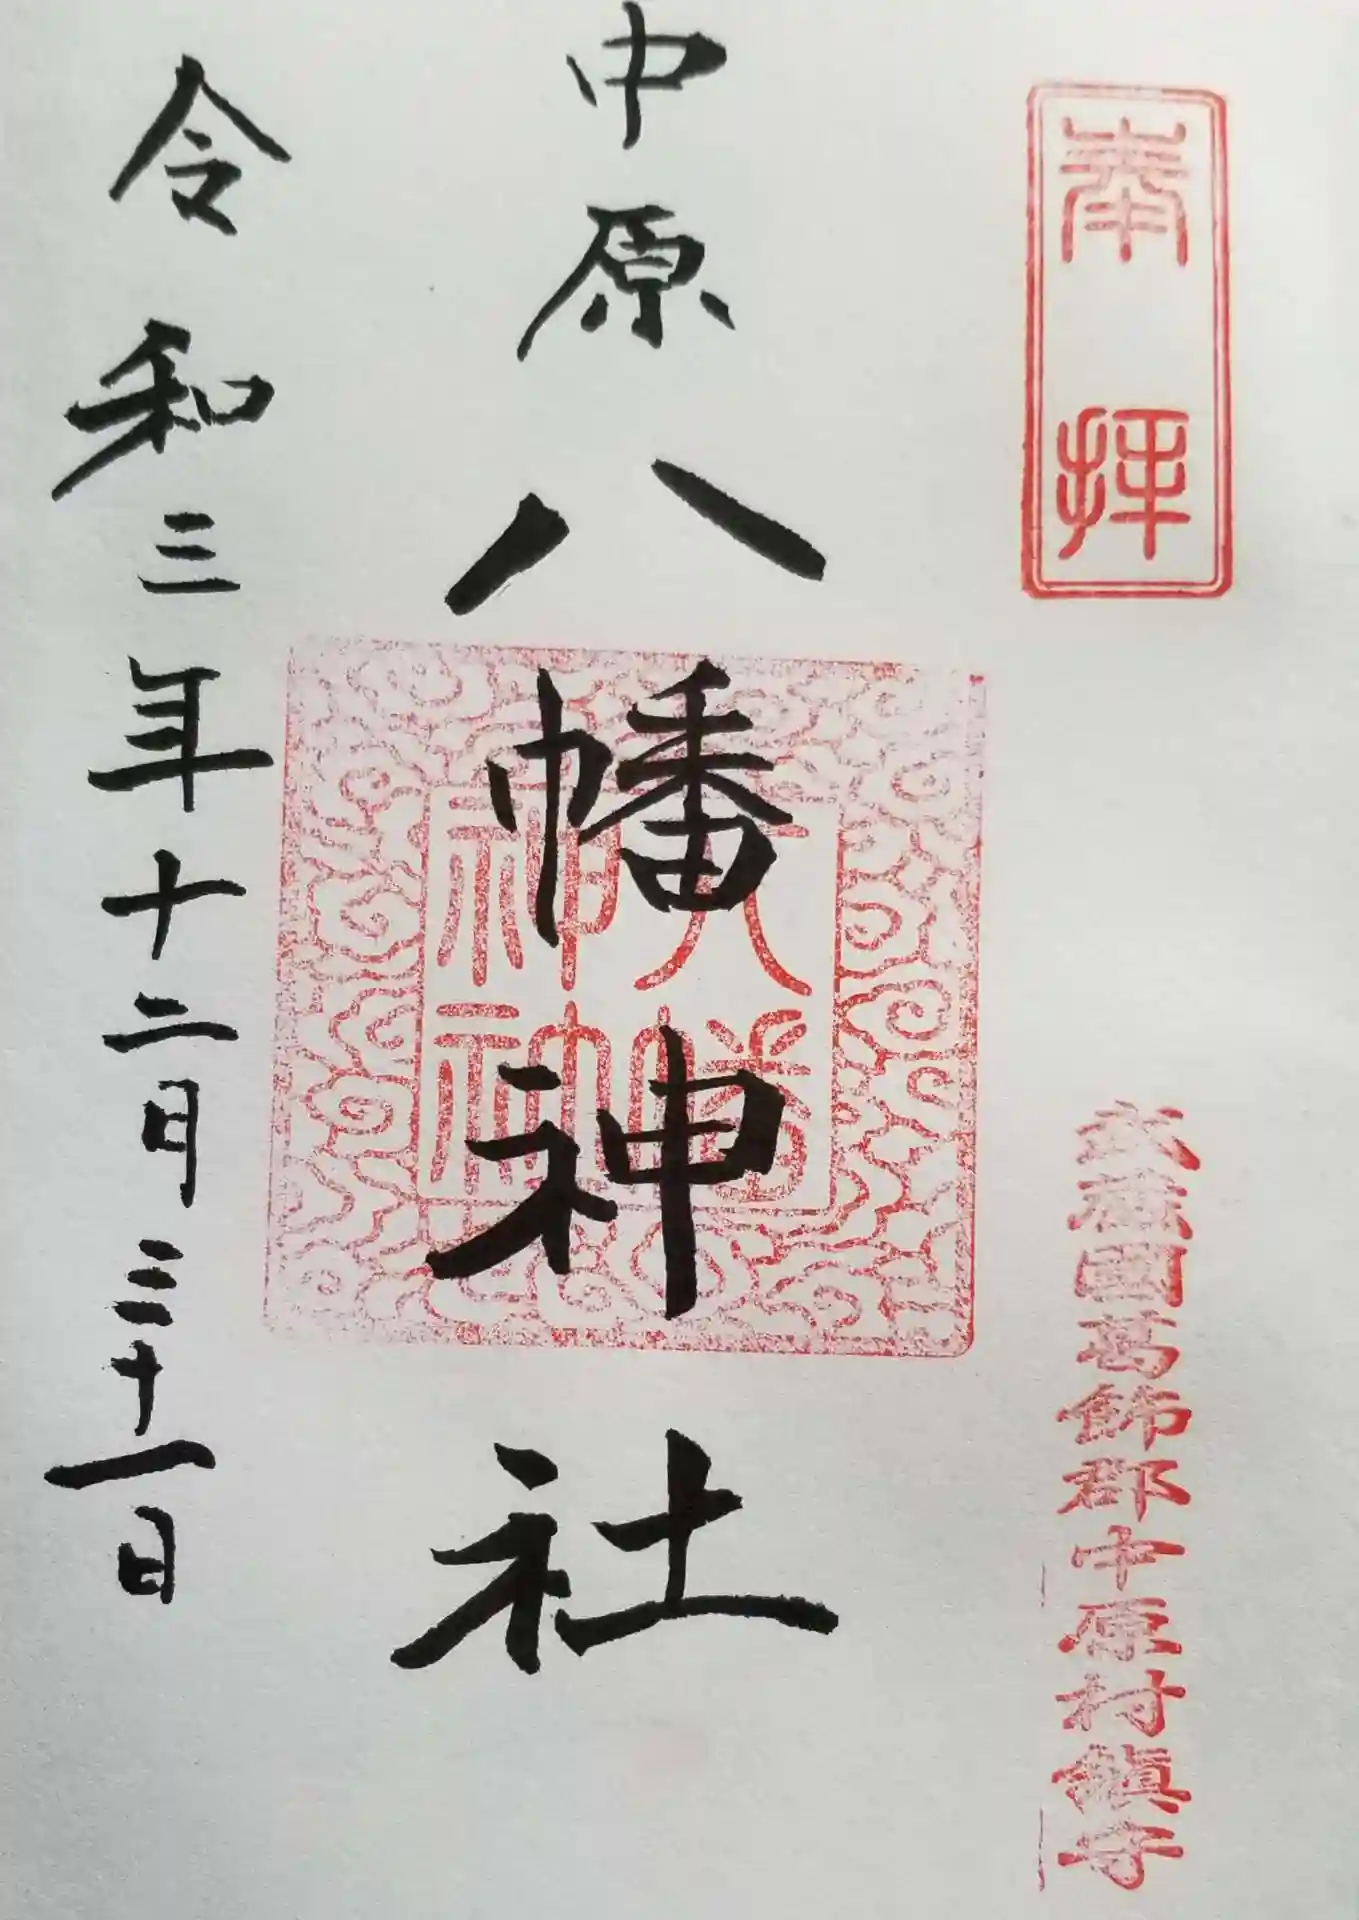 奉拝
武蔵國葛飾郡中原村鎮守
中原八幡神社
八幡
神社
令和三年十二月三十一日